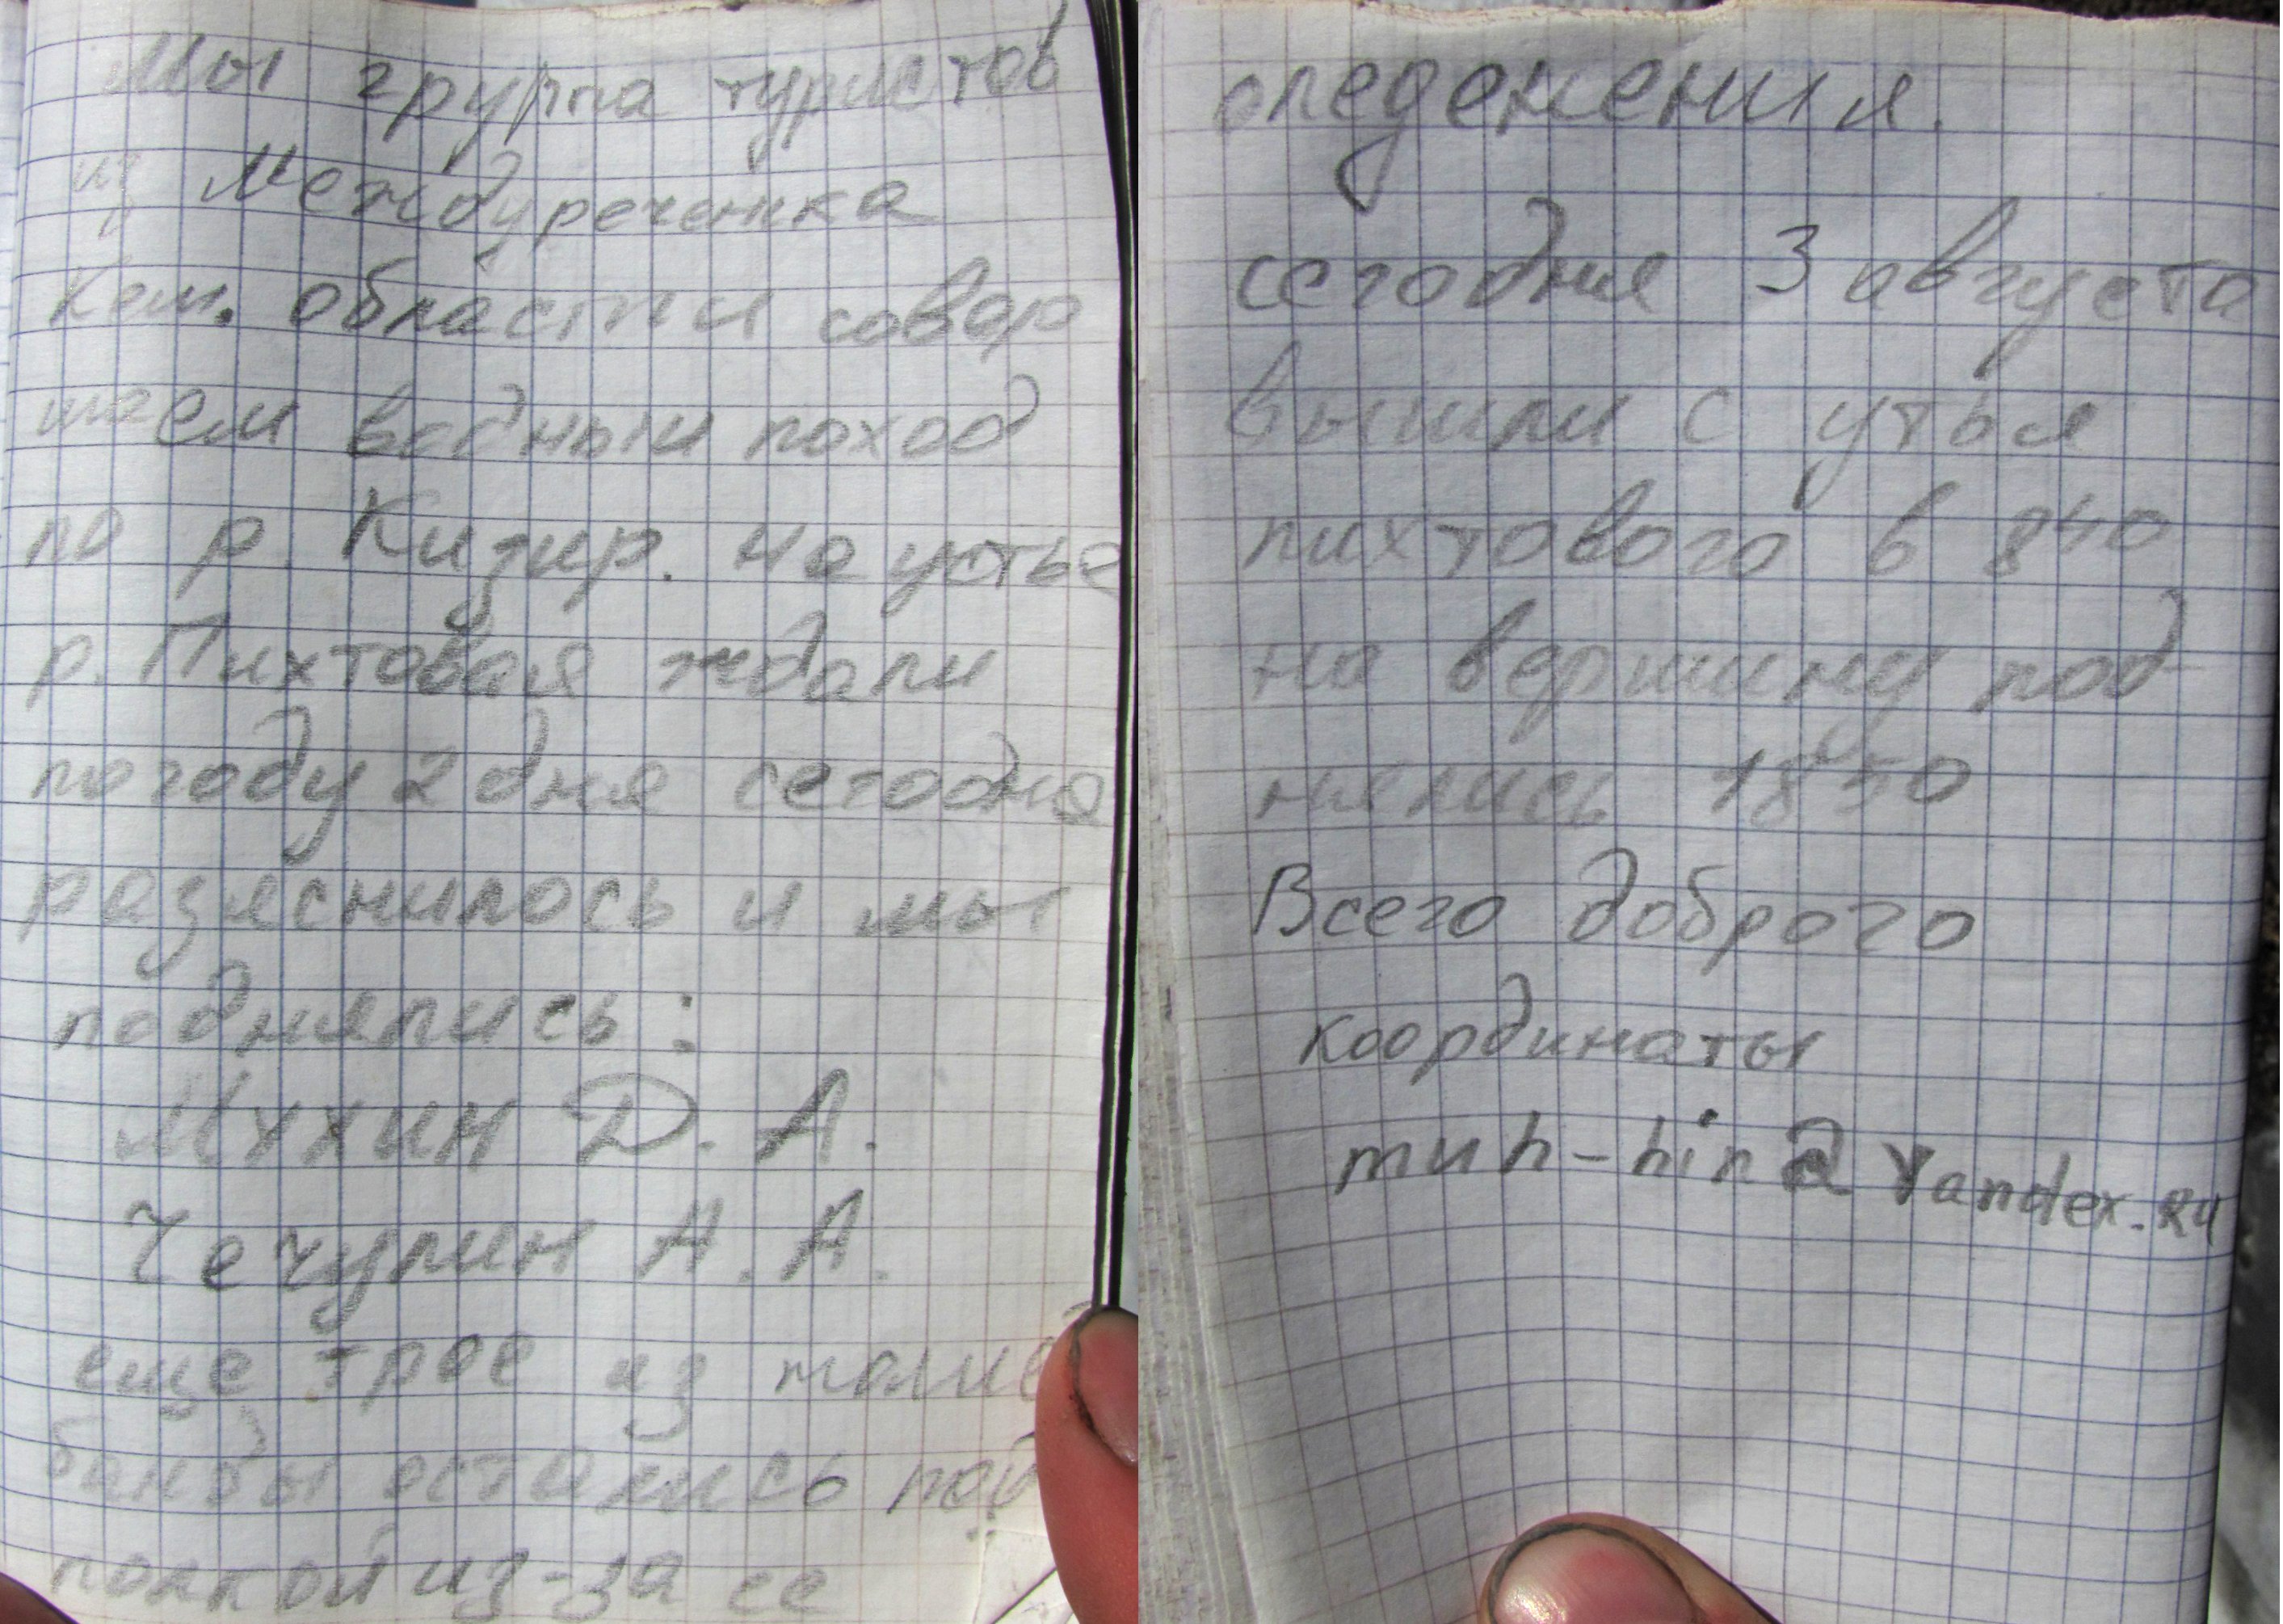 Мы группа туристов
из Междуреченка
Кем. области совер
шаем водный поход
по р Кизир. На устье
р. Пихтовая ждали
погоду 2 дня сегодня
разяснилось и мы
поднялись:
Мухин Д. А.
Чечулин А. А.
еще трое из нашей
банды остались под
полкой из-за ее
оледенения.
сегодня 3 августа
вышли с утья
пихтового в 8 40
на вершину под
нялись 18 50
Всего доброго
координаты
muh-hin@Yandex.Ru